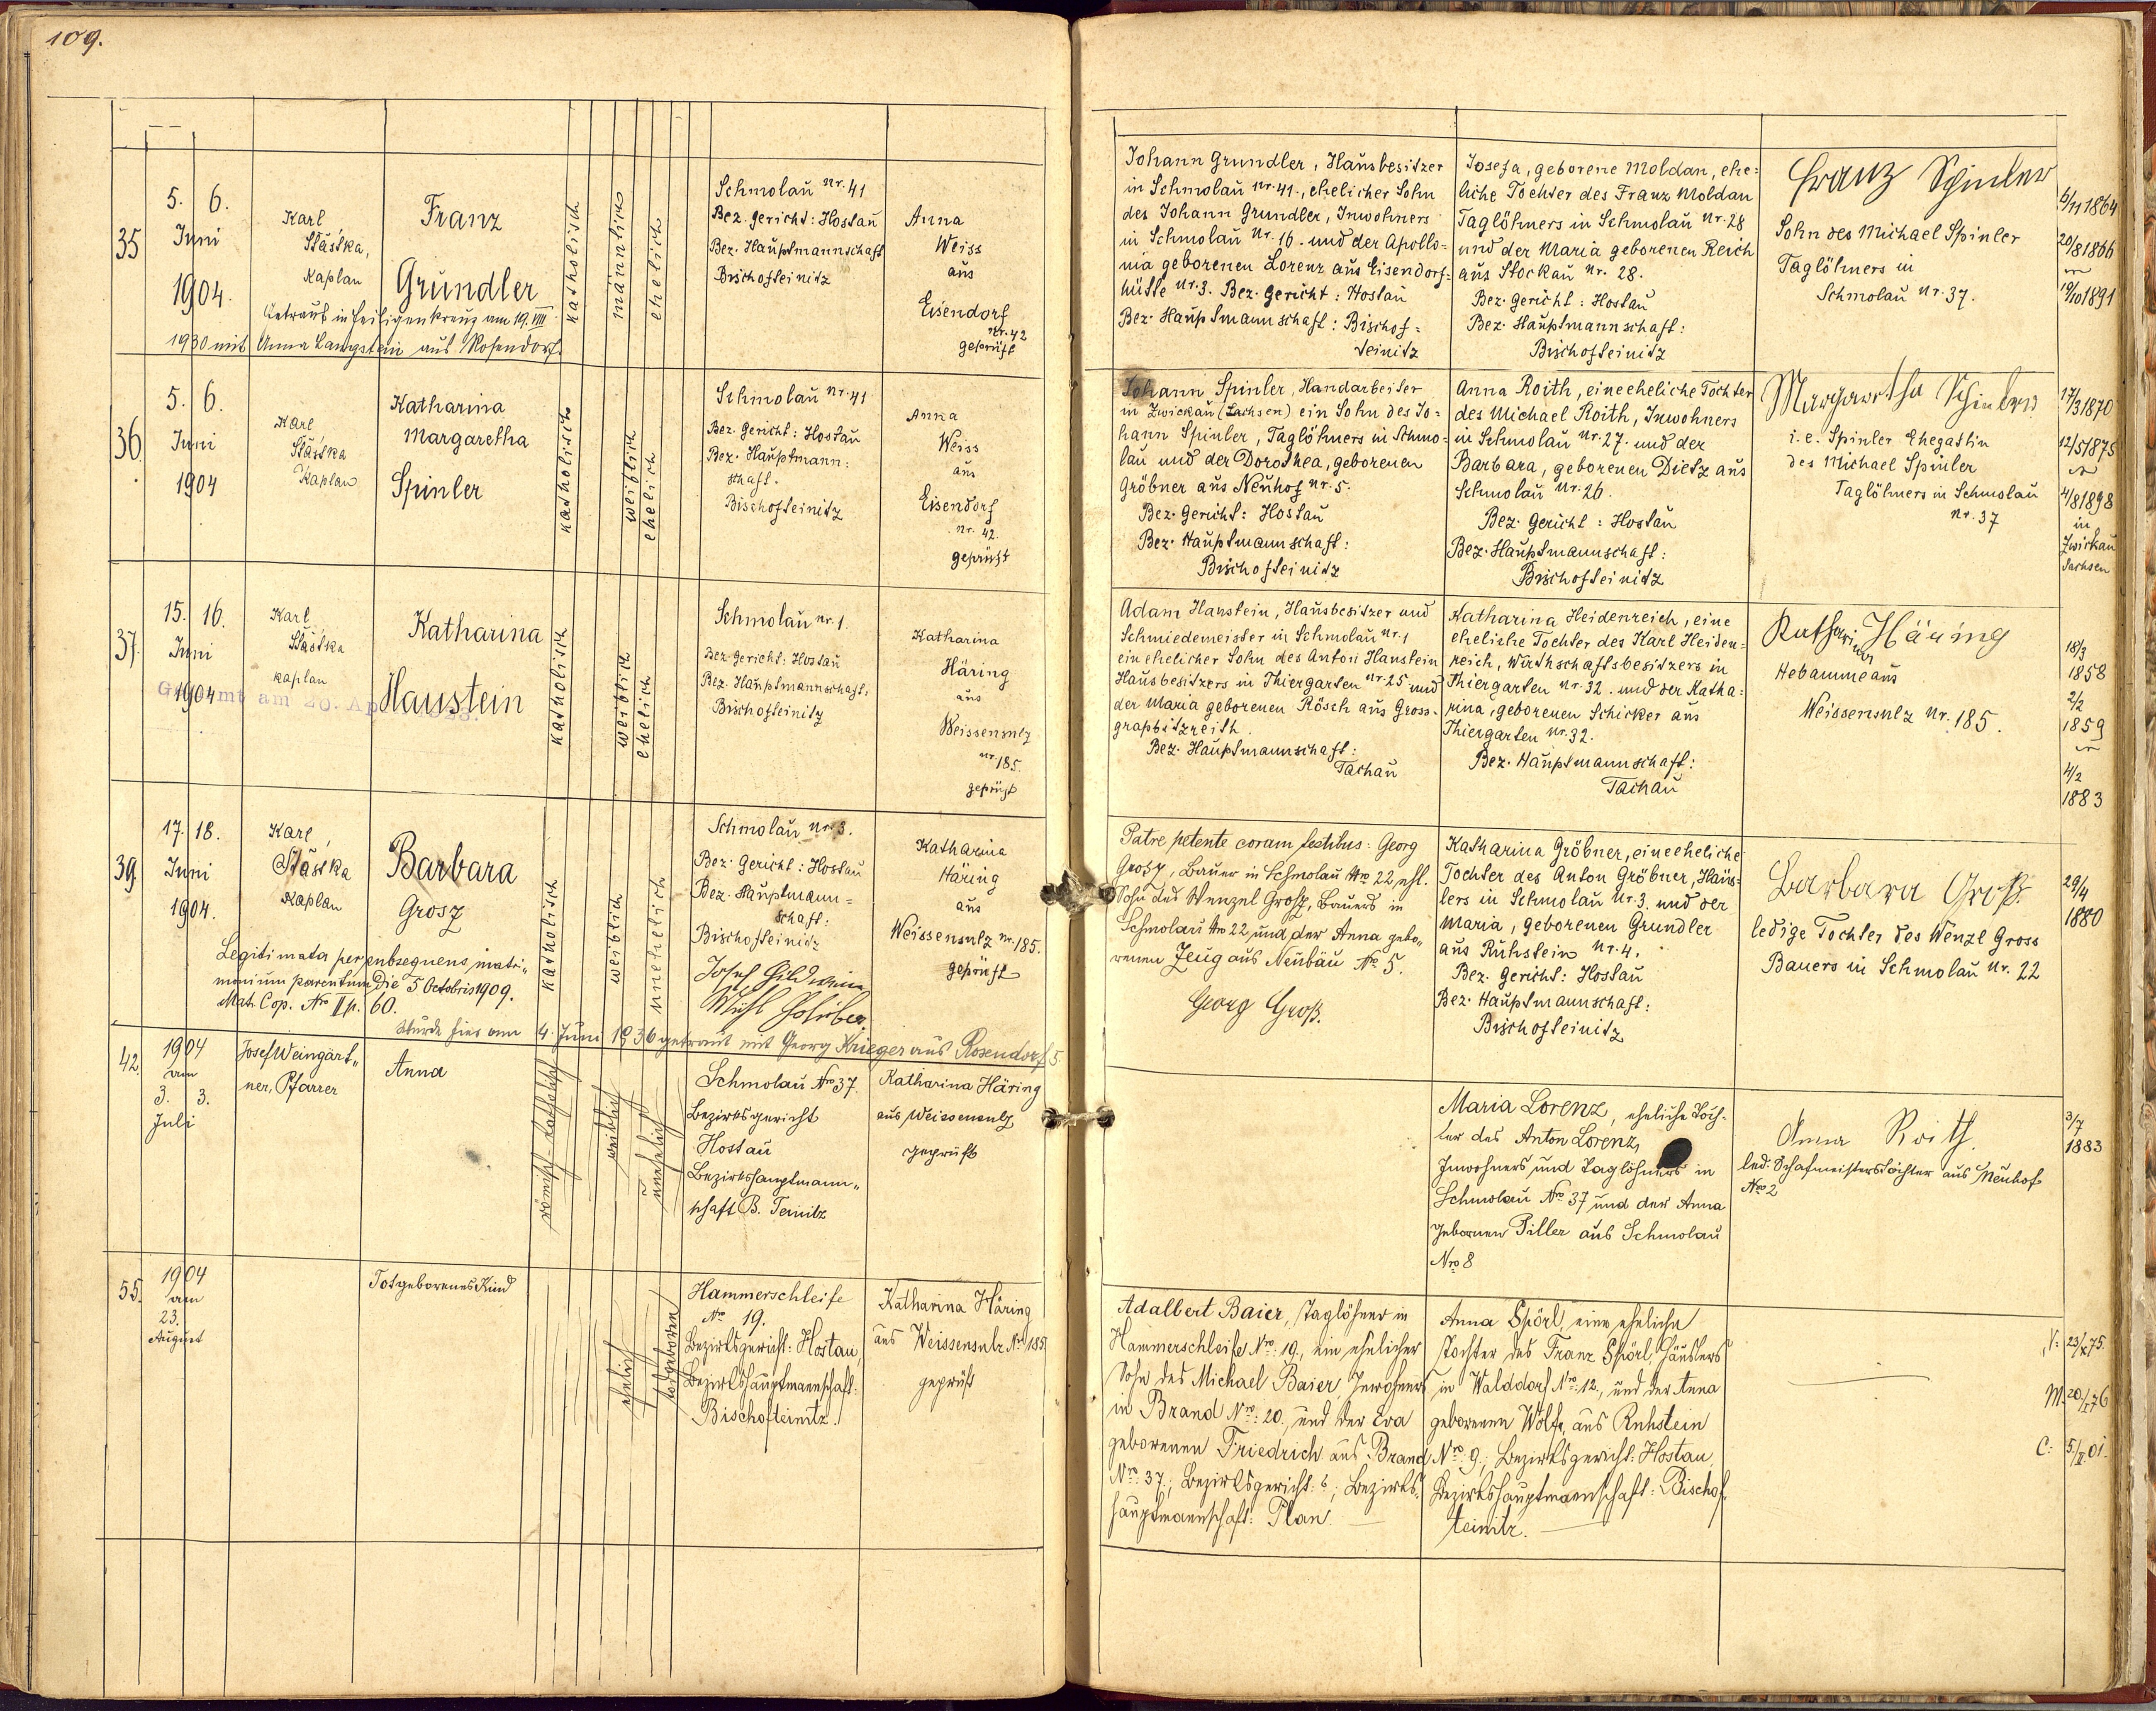 109.
35
5. 6.
Juni
1904.
Karl
Šťástka,
Kaplan
Franz
Grundler
Getraut in Heiligenkreuz am 19. VIII
1930 mit Anna Langstein aus Rosendorf.
katholisch
männlich
ehelich
Schmolau Nr. 41
Bez. Gericht: Hostau
Bez. Hauptmannschaft
Bischofteinitz
Anna
Weiss
aus
Eisendorf
Nr. 42
geprüft
Johann Grundler, Hausbesitzer
in Schmolau Nr. 41., ehelicher Sohn
des Johann Grundler, Inwohners
in Schmolau Nr. 16. und der Apollo=
nia geborenen Lorenz aus Eisendorf=
hütte Nr. 3. Bez. Gericht: Hostau
Bez. Hauptmannschaft: Bischof=
teinitz
Josefa, geborene Moldan, ehe=
liche Tochter des Franz Moldan
Taglöhners in Schmolau Nr. 28
und der Maria geborenen Reich
aus Stockau Nr. 28.
Bez. Gericht: Hostau
Bez. Hauptmannschaft:
Bischofteinitz
Franz Spinler
Sohn des Michael Spinler
Taglöhners in
Schmolau Nr. 37.
6/11 1864
20/8 1866
19/10 1891
36
5. 6.
Juni
1904
Karl
Šťástka
Kaplan
Katharina
Margaretha
Spinler
katholisch
weiblich
ehelich
Schmolau Nr. 41
Bez. Gericht: Hostau
Bez. Hauptmann=
schaft.
Bischofteinitz
Anna
Weiss
aus
Eisendorf
Nr. 42.
geprüft
Johann Spinler, Handarbeiter
in Zwickau (Sachsen) ein Sohn des Jo=
hann Spinler, Taglöhners in Schmo=
lau und der Dorothea, geborenen
Gröbner aus Neuhof Nr. 5.
Bez. Gericht: Hostau
Bez. Hauptmannschaft:
Bischofteinitz
Anna Roith, eine eheliche Tochter
des Michael Roith, Inwohners
in Schmolau Nr. 27. und der
Barbara, geborenen Dietz aus
Schmolau Nr. 26.
Bez. Gericht: Hostau
Bez. Hauptmannschaft:
Bischofteinitz
Margaretha Spinler
i. e. Spinler Ehegattin
des Michael Spinler
Taglöhners in Schmolau
Nr. 37
17/3 1870
12/5 1875
4/8 1898
in
Zwickau
Sachsen
37.
15. 16.
Juni
1904
Karl
Šťástka
Kaplan
Katharina
Haustein
katholisch
weiblich
ehelich
Schmolau Nr. 1.
Bez. Gericht: Hostau
Bez. Hauptmannschaft:
Bischofteinitz
Katharina
Häring
aus
Weissensulz
Nr. 185.
geprüft
Adam Haustein, Hausbesitzer und
Schmiedemeister in Schmolau Nr. 1
ein ehelicher Sohn des Anton Haustein
Hausbesitzers in Thiergarten Nr. 25 und
der Maria geborenen Rösch aus Gross-
grapbitzreith.
Bez. Hauptmannschaft:
Tachau
Katharina Heidenreich, eine
eheliche Tochter des Karl Heiden=
reich, Wirthschaftsbesitzers in
Thiergarten Nr. 32. und der Katha=
rina, geborenen Schicker aus
Thiergarten Nr. 32.
Bez. Hauptmannschaft:
Tachau
Katharina Häring
Hebamme aus
Weissensulz Nr. 185.
18/3
1858
2/2
1859
4/2
1883
39
17. 18.
Juni
1904.
Karl
Šťástka
Kaplan
Barbara
Grosz
Legitimata per subsequens matri„
monium parentum die 5 Octobris 1909.
Mat. Cop. Nro II p. 60.
Wurde hier am 4. Juni 1936 getraut mit Georg Krieger aus Rosendorf 5
katholisch
weiblich
unehelich
Schmolau Nr. 3.
Bez. Gericht: Hostau
Bez. Hauptmann=
schaft:
Bischofteinitz
Katharina
Häring
aus
Weissensulz Nr. 185.
geprüft
Patre petente coram testibus: Georg
Grosz, Bauer in Schmolau Nro 22, ehl.
Sohn des Wenzel Grosz, Bauers in
Schmolau Nro 22 und der Anna gebo„
renen Zeug aus Neubäu No. 5.
Georg Groß.
Katharina Gröbner, eine eheliche
Tochter des Anton Gröbner, Häus=
lers in Schmolau Nr. 3. und der
Maria, geborenen Grundler
aus Ruhstein Nr. 4.
Bez. Gericht: Hostau
Bez. Hauptmannschaft:
Bischofteinitz
Barbara Groß.
ledige Tochter des Wenzl Gross
Bauers in Schmolau Nr. 22
29/4
1880
42.
1904
am
3. 3.
Juli
Josef Weingärt„
ner, Pfarrer
Anna
römisch-katholisch
weiblich
unehelich
Schmolau Nro 37.
Bezirksgericht
Hostau
Bezirkshauptmann„
schaft B. Teinitz
Katharina Häring
aus Weissensulz
geprüft
Maria Lorenz, eheliche Toch-
ter des Anton Lorenz,
Inwohners und Taglöhners in
Schmolau Nro 37 und der Anna
geborenen Piller aus Schmolau
Nro 8
Anna Roith.
led. Schafmeisterstochter aus Neuhof
Nro 2
3/7
1883
55.
1904
am
23.
August
Totgeborenes Kind
ehelich
todgeboren
Hammerschleife
No 19.
Bezirksgericht: Hostau,
Bezirkshauptmannschaft:
Bischofteinitz.
Katharina Häring
aus Weissensulz Nro 185.
geprüft
Adalbert Baier, Taglöhner in
Hammerschleife Nro: 19., ein ehelicher
Sohn des Michael Baier, Inwohners
in Brand Nro: 20, und der Eva
geborenen Friedrich aus Brand
Nro: 37.; Bezirksgericht: ; Bezirks„
hauptmannschaft: Plan.
Anna Spörl, eine eheliche
Tochter des Franz Spörl, Häuslers
in Walddorf Nro: 12., und der Anna
geborenen Wolf, aus Ruhstein
Nro: 9.; Bezirksgericht: Hostau,
Bezirkshauptmannschaft: Bischof„
teinitz.
V: 23/X 75.
M: 20/I 76
C: 5/II 01.